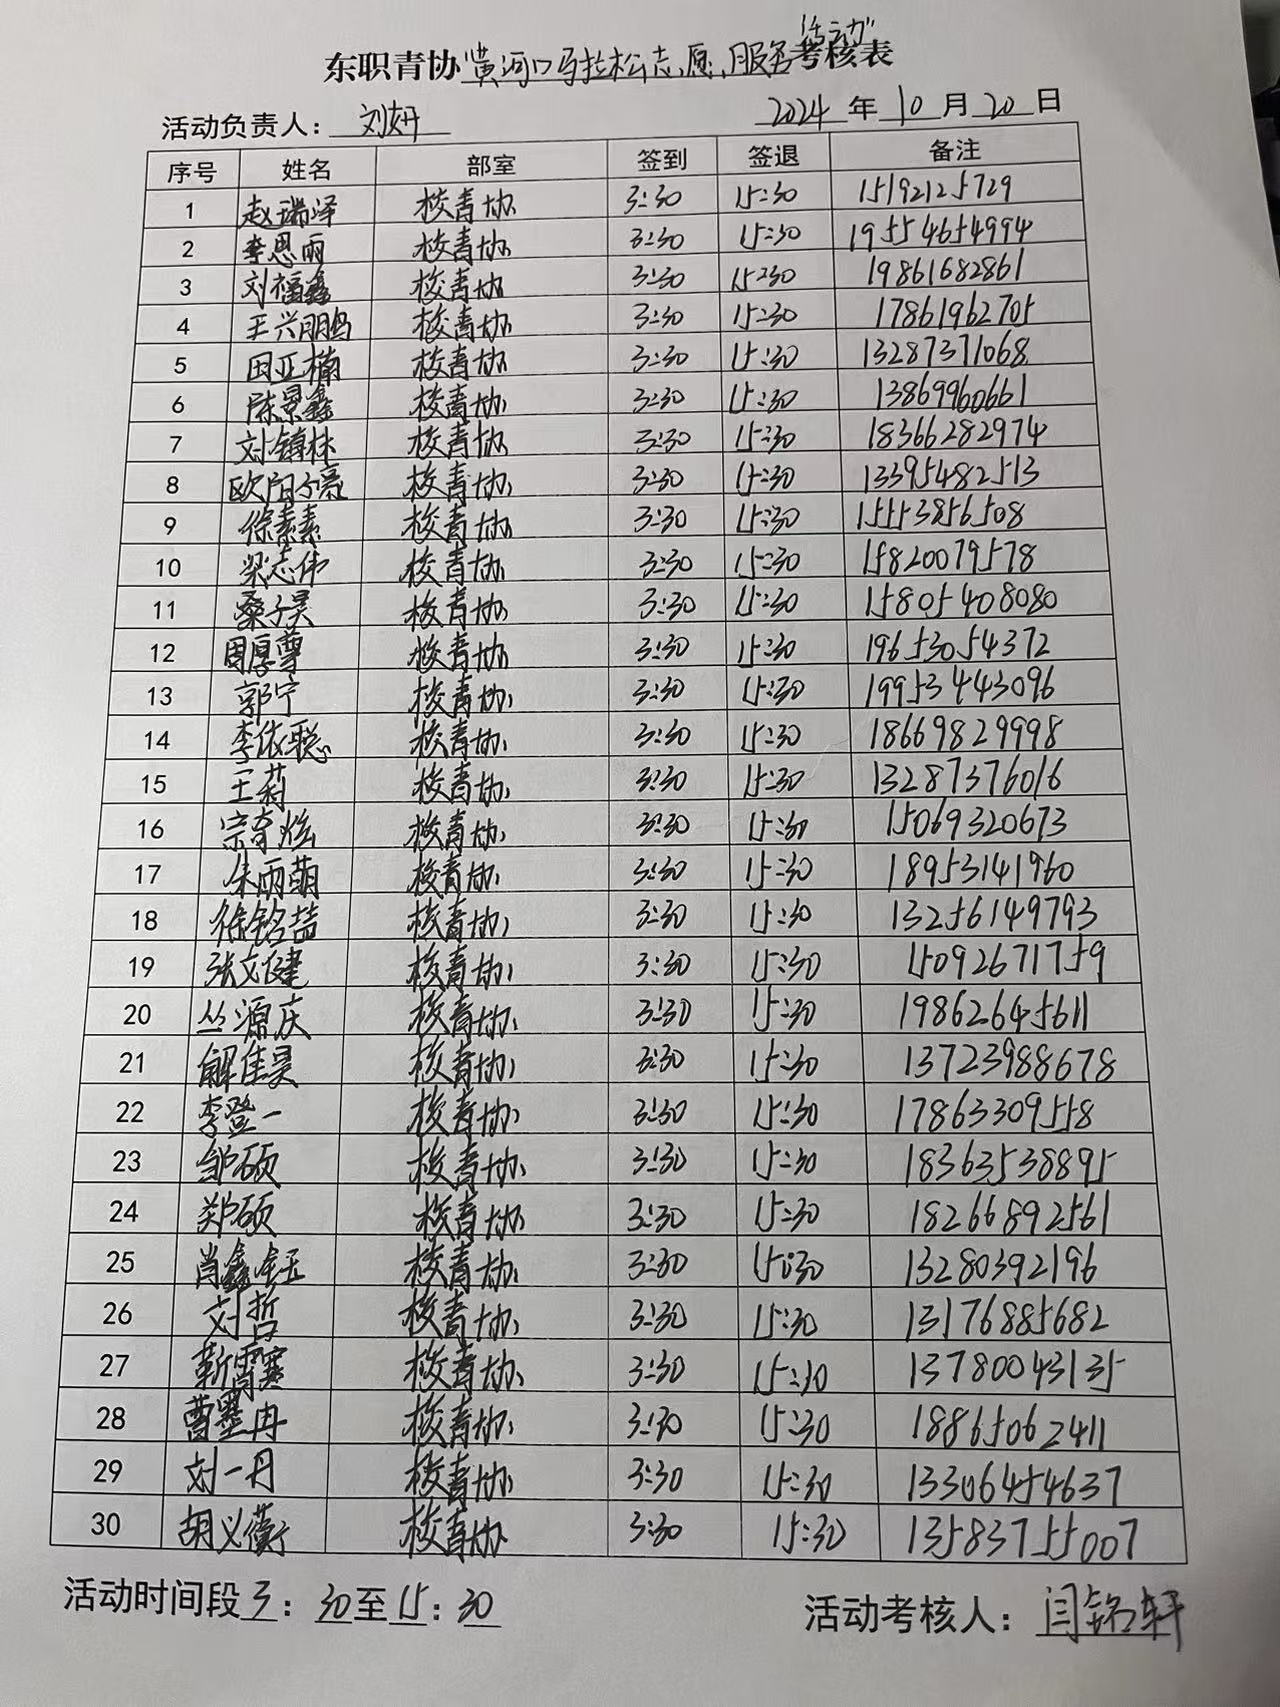 东职青协黄河口马拉松志愿服务活动考核表
活动负责人：刘妍 2024年10月20日
序号 姓名 部室 签到 签退 备注
1 赵瑞泽 校青协 3:30 15:30 15192125729
2 李恩雨 校青协 3:30 15:30 19554654994
3 刘福鑫 校青协 3:30 15:30 19861682861
4 王兴鹏 校青协 3:30 15:30 17861962705
5 田亚楠 校青协 3:30 15:30 13287371068
6 陈景鑫 校青协 3:30 15:30 13869960661
7 刘镇林 校青协 3:30 15:30 18366282974
8 欧阳子豪 校青协 3:30 15:30 13395482513
9 徐素素 校青协 3:30 15:30 15553856508
10 梁志伟 校青协 3:30 15:30 15820079578
11 桑子昊 校青协 3:30 15:30 15805408080
12 周厚尊 校青协 3:30 15:30 19653054372
13 郭宁 校青协 3:30 15:30 19953443096
14 李依聪 校青协 3:30 15:30 18669829998
15 王莉 校青协 3:30 15:30 13287376016
16 宗奇炫 校青协 3:30 15:30 15069320673
17 朱雨萌 校青协 3:30 15:30 18953141960
18 徐铭喆 校青协 3:30 15:30 13256149793
19 张文健 校青协 3:30 15:30 15092671759
20 丛源庆 校青协 3:30 15:30 19862645611
21 解佳昊 校青协 3:30 15:30 13723988678
22 李登一 校青协 3:30 15:30 17863309558
23 邹硕 校青协 3:30 15:30 18363538895
24 郑硕 校青协 3:30 15:30 18266892561
25 肖鑫钰 校青协 3:30 15:30 13280392196
26 刘哲 校青协 3:30 15:30 13176885682
27 靳霄寒 校青协 3:30 15:30 13780043135
28 曹墨冉 校青协 3:30 15:30 18865062411
29 刘一丹 校青协 3:30 15:30 13306454637
30 胡义衡 校青协 3:30 15:30 13583755007
活动时间段3：30至15：30 活动考核人：闫铭轩